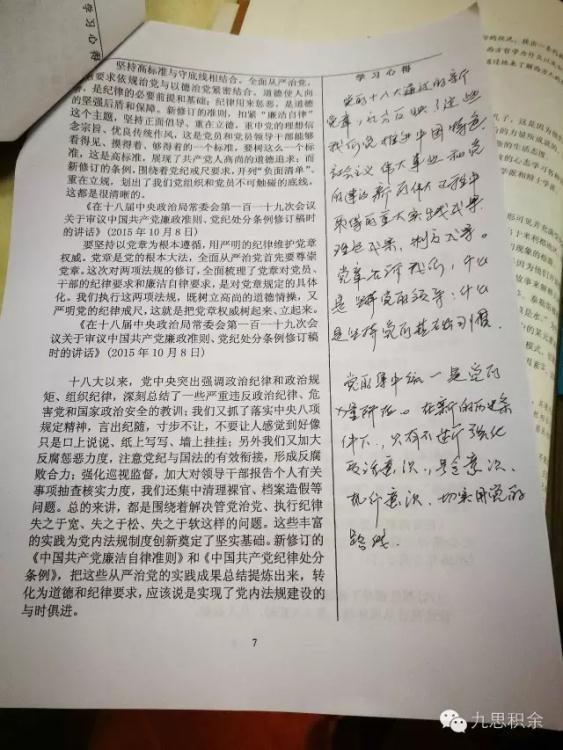 学习心得
坚持高标准与守底线相结合。全面从严治党，
要求依规治党与以德治党紧密结合。道德使人向
善，是纪律的必要前提和基础；纪律用来惩恶，是道德
的坚强后盾和保障。新修订的准则，扣紧“廉洁自律”
这个主题，坚持正面倡导、重在立德，重申党的理想信
念宗旨、优良传统作风，这是党员和党员领导干部能够
看得见、摸得着、够得着的一个标准，要树这么一个标
准，这是高标准，展现了共产党人高尚的道德追求；而
新修订的条例，围绕着党纪戒尺要求，开列“负面清单”、
重在立规，划出了我们党组织和党员不可触碰的底线，
这都是很清晰的。
《在十八届中央政治局常委会第一百一十九次会议
关于审议中国共产党廉政准则、党纪处分条例修订稿时
的讲话》（2015年10月8日）
要坚持以党章为根本遵循，用严明的纪律维护党章
权威。党章是党的根本大法，全面从严治党首先要尊崇
党章。这次对两项法规的修订，全面梳理了党章对党员、
干部的纪律要求和廉洁自律要求，是对党章规定的具体
化。我们执行这两项法规，既树立高尚的道德情操，又
严明党的纪律戒尺，这就是把党章权威树起来、立起来。
《在十八届中央政治局常委会第一百一十九次会
议关于审议中国共产党廉政准则、党纪处分条例修订稿
时的讲话》（2015年10月8日）
十八大以来，党中央突出强调政治纪律和政治规
矩、组织纪律，深刻总结了一些严重违反政治纪律、危
害党和国家政治安全的教训；我们又抓了落实中央八项
规定精神，言出纪随，寸步不让，不要让人感觉到好像
只是口上说说、纸上写写、墙上挂挂；另外我们又加大
反腐惩恶力度，注意党纪与国法的有效衔接，形成反腐
败合力；强化巡视监督，加大对领导干部报告个人有关
事项抽查核实力度，我们还集中清理裸官、档案造假等
问题。总的来讲，都是围绕着解决管党治党、执行纪律
失之于宽、失之于松、失之于软这样的问题。这些丰富
的实践为党内法规制度创新奠定了坚实基础。新修订的
《中国共产党廉洁自律准则》和《中国共产党纪律处分
条例》，把这些从严治党的实践成果总结提炼出来，转
化为道德和纪律要求，应该说是实现了党内法规建设的
与时俱进。
学习心得
党的十八大通过的新
党章，充分反映了这些
我们党推进中国特色
社会主义伟大事业和党
的建设新的伟大工程中
取得的重大实践成果
理论成果，制度成果。
党章告诉我们，什么
是党的领导；什么
是坚持党的
党的集中统一是党的
力量所在。在新的历史条
件下，只有不断强化
政治意识、号令意识、
执行意识、切实用党的
7
九思积余